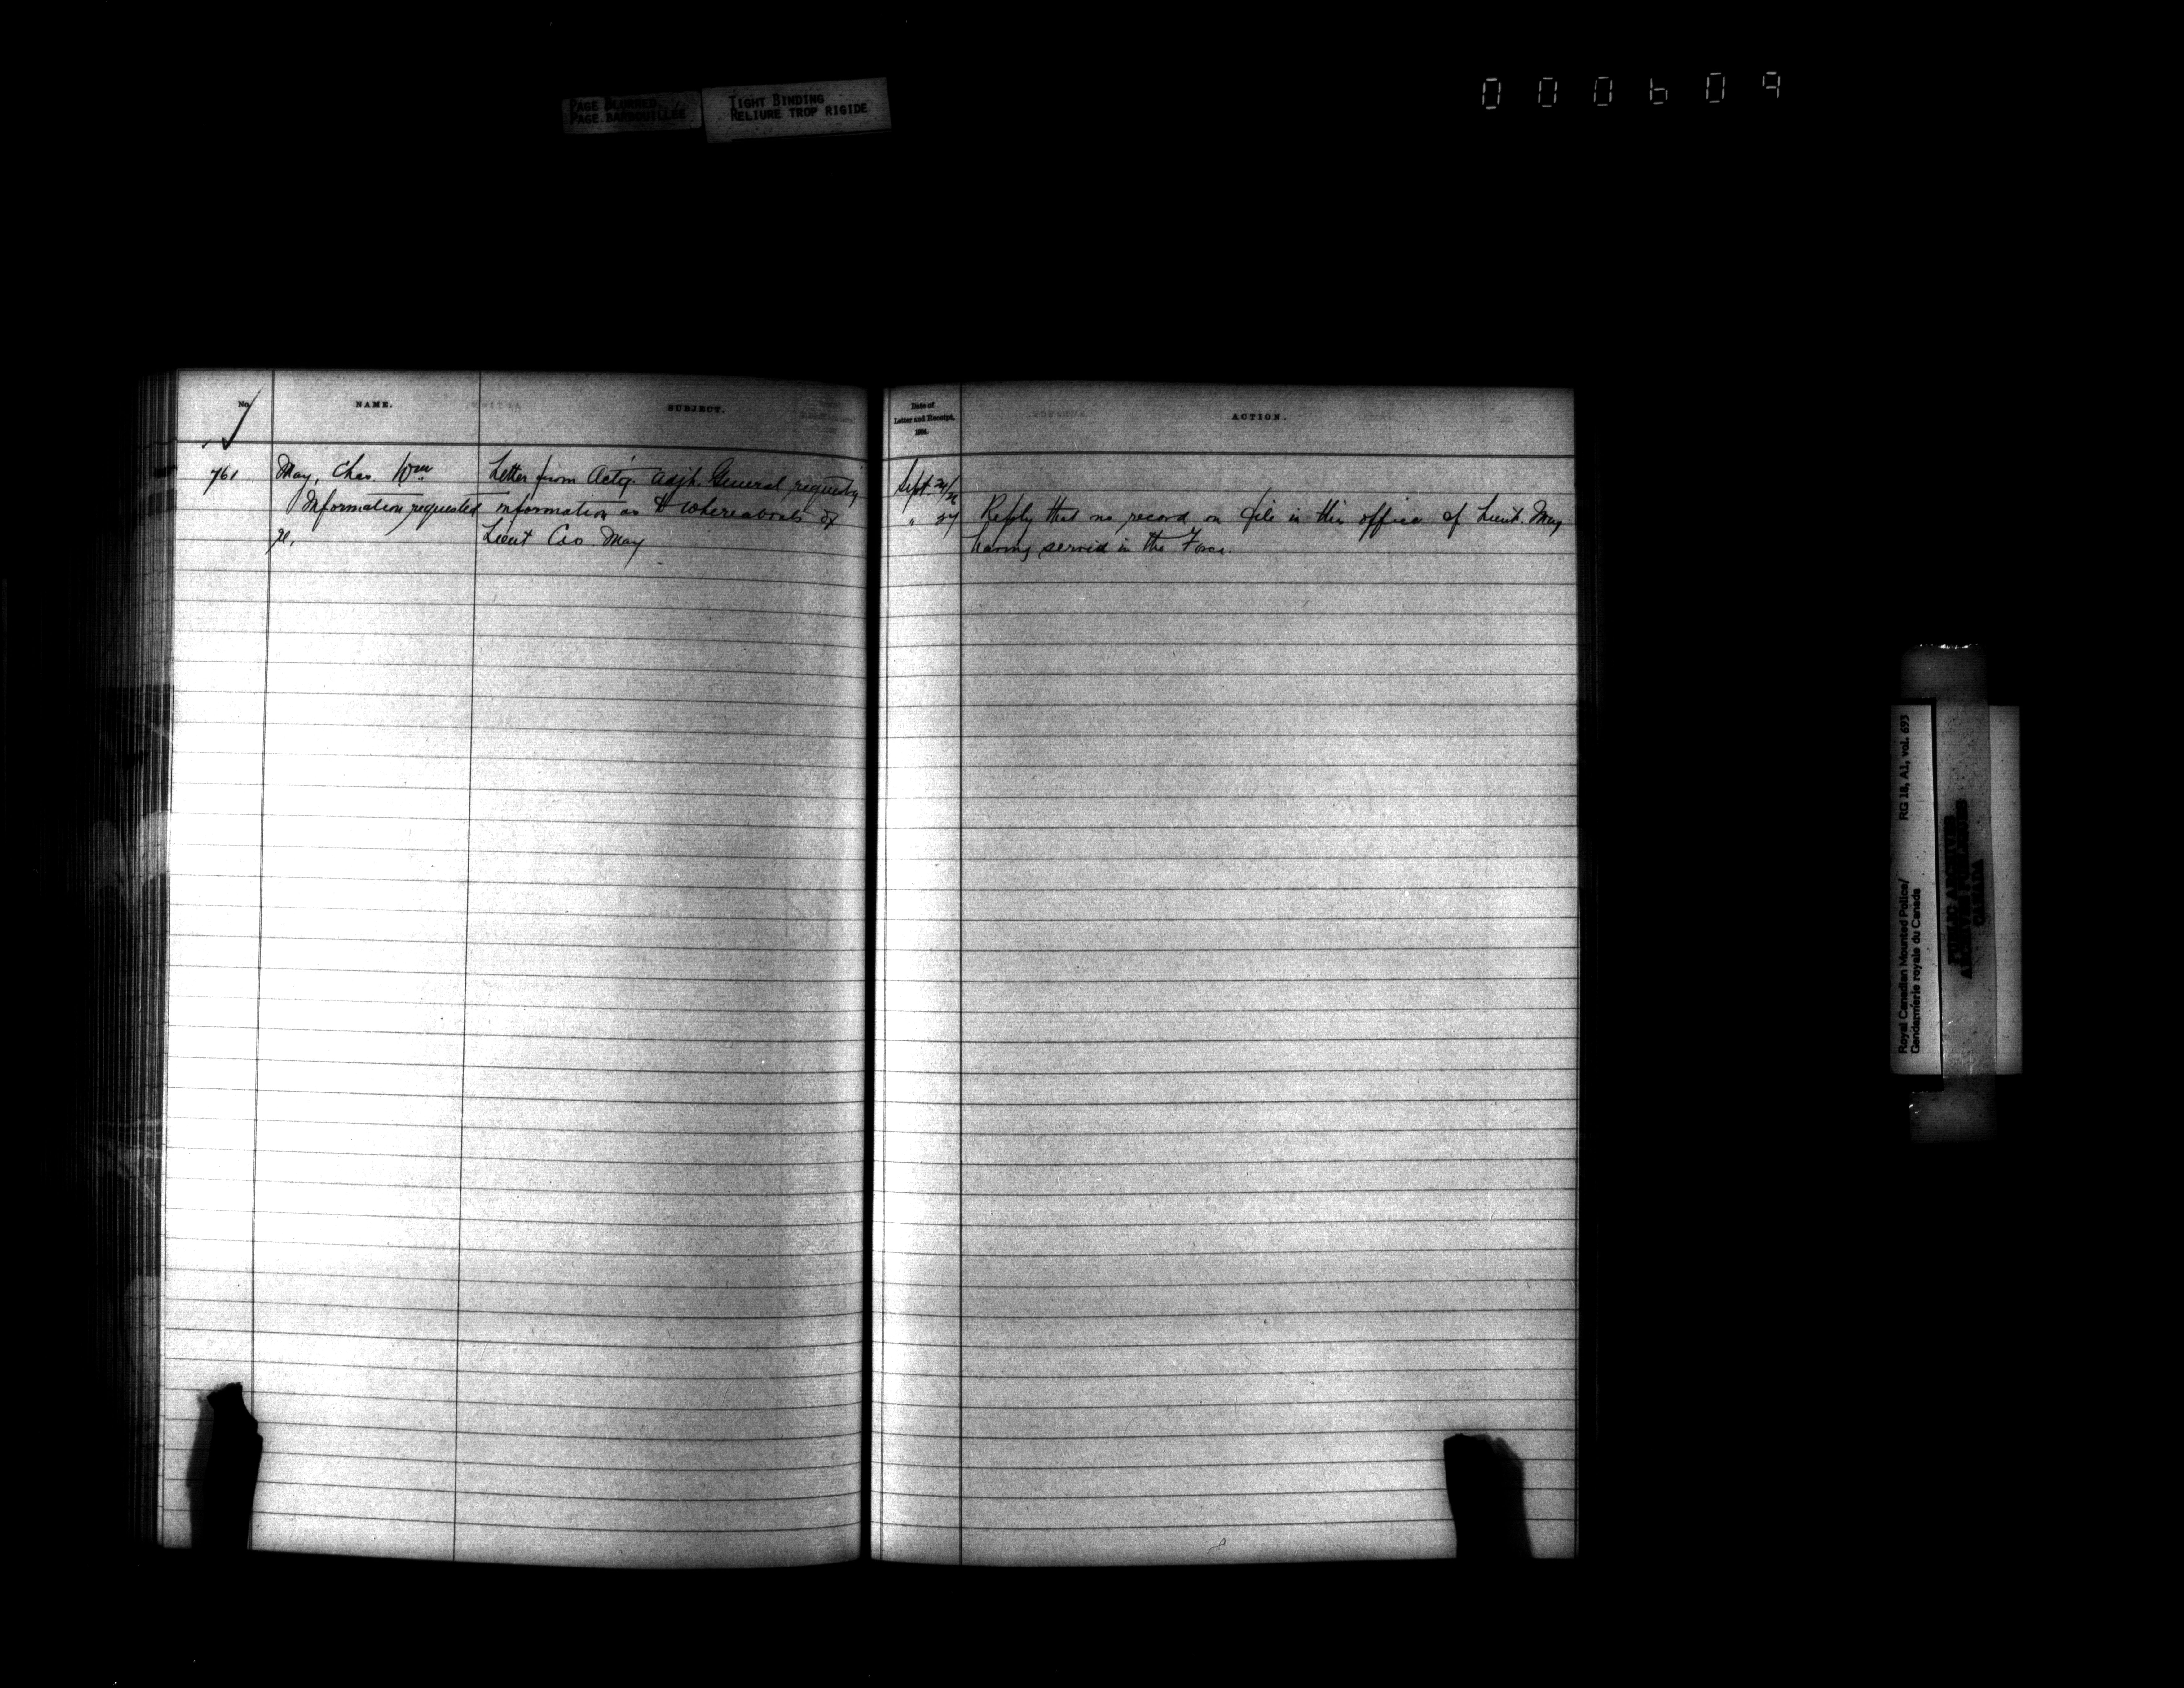 PAGE BLURRED
PAGE BARBOUILLÉE
TIGHT BINDING
RELIURE TROP RIGIDE
000609
No.
NAME.
SUBJECT.
Date of
Letter and Receipt,
190
ACTION.
761
May, Chas. Wm
Information requested
re,
Letter from Actg. Adjt. General requestg
information as to whereabouts of
Lieut Cas. May
Sept. 24/26
" 27
Reply that no record on file in this office of Lieut. May
having served in the Force.
Royal Canadian Mounted Police/
Gendarmerie royale du Canada
RG 18, A1, vol. 693
PUBLIC ARCHIVES
ARCHIVES PUBLIQUES
CANADA